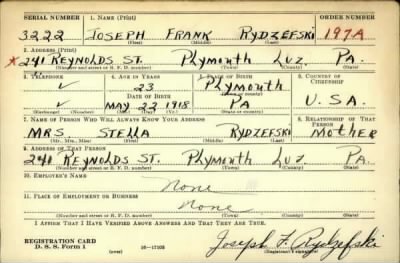 SERIAL NUMBER 1. NAME (Print) ORDER NUMBER
3222 JOSEPH FRANK RYDZEFSKI 197A
(First) (Middle) (Last)
2. ADDRESS (Print)
* 241 REYNOLDS ST. PLYMOUTH LUZ. PA.
(Number and street or R. F. D. number) (Town) (County) (State)
3. TELEPHONE 4. AGE IN YEARS 5. PLACE OF BIRTH 6. COUNTRY OF CITIZENSHIP
✓ 23 PLYMOUTH
DATE OF BIRTH (Town or county)
✓ MAY 22 1918 PA U.S.A.
(Exchange) (Number) (Mo.) (Day) (Yr.) (State or country)
7. NAME OF PERSON WHO WILL ALWAYS KNOW YOUR ADDRESS 8. RELATIONSHIP OF THAT PERSON
MRS. STELLA RYDZEFSKI MOTHER
(Mr., Mrs., Miss) (First) (Middle) (Last)
9. ADDRESS OF THAT PERSON
241 REYNOLDS ST. PLYMOUTH LUZ. PA.
(Number and street or R. F. D. number) (Town) (County) (State)
10. EMPLOYER'S NAME
None
11. PLACE OF EMPLOYMENT OR BUSINESS
None
(Number and street or R. F. D. number) (Town) (County) (State)
I AFFIRM THAT I HAVE VERIFIED ABOVE ANSWERS AND THAT THEY ARE TRUE.
REGISTRATION CARD
D. S. S. Form 1 (over) 16-17105 Joseph F. Rydzefski
(Registrant's signature)